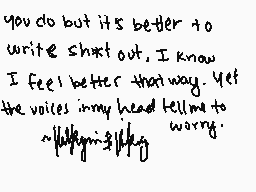 you do but it's better to
write sh*t out, I know
I feel better that way. Yet
the voices in my head tell me to
worry.